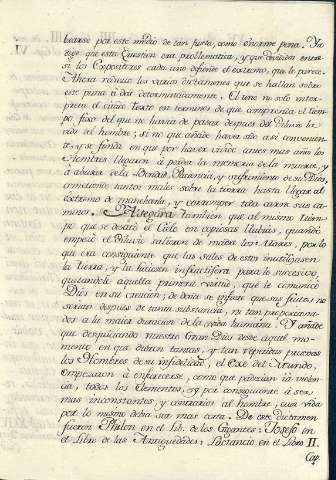 bearse por este medio de tan justa, como enorme pena. Ya
dige que esta Question era problematica, y que dividida entre
si los Expositores cada uno defiende el extremo, que le parece.
Ahora reducire los varios dictamenes que se hallan sobre
este punto à dos determinadamente. El uno no solo inter-
preta el citado Texto en terminos de que comprenda el tiem-
po fixo del que no havia de pasar despues del Diluvio la
vida del hombre; si no que añade haver sido asi convenien-
te, y se funda en que por haver vivido antes mas años los
Hombres llegaron à perder la memoria de la muerte, y
à abusar de la Bondad, Paciencia, y sufrimiento de su Dios,
cometiendo tantos males sobre la tierra hasta llegar al
extremo de mancharla, y corromper todo carne sus ca-
minos. Alegara tambien que al mismo tiem-
po que se desató el Cielo en copiosas lluvias, quando
empezó el Diluvio salieron de madre los Mares, por lo
que era consiguiente que las sales de estos inutilizasen
la tierra, y la hiciesen infructifera para lo succesivo,
quitandole aquella primera virtud, que le comunicó
Dios en su creacion; de donde se infiere que sus frutos, no
serian despues de tanta substancia, ni tan proporciona-
dos a la maior duracion de la vida humana. Y añade
que desquiciando nuestro Gran Dios desde aquel mo-
mento en que dieron tantas, y tan repetidas pruevas
los Hombres de su infidelidad, el Exe del Mundo,
empezaron à enfurecerse, como que padecian la violen-
cia, todos los Elementos, y por consiguiente à ser
mas inconstantes, y contrarios al hombre, cuia vida
por lo mismo debia ser mas corta. De este dictamen
fueron Philon en el Lib. de los Gigantes: Josefo en
el Libro de las Antiguedades: Lactancio en el Libro II.
Cap.